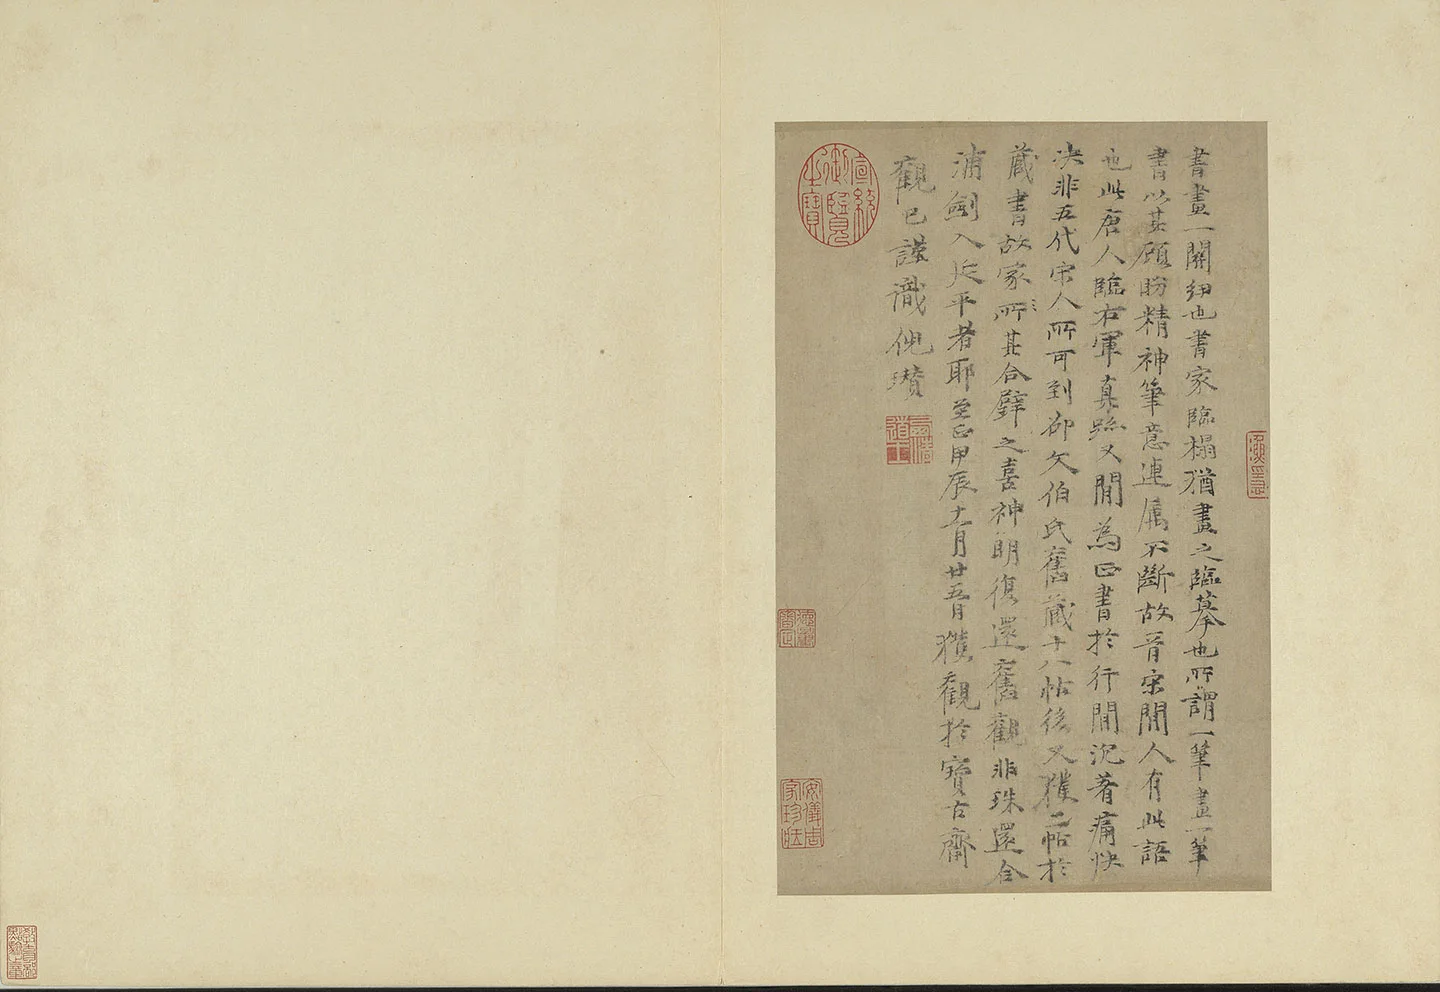 書畫一關紐也書家臨榻猶畫之臨摹也所謂一筆畫一筆
書以其顧盼精神筆意連属不斷故晉宋間人有此語
也此唐人臨右軍真跡又間為正書於行間沉着痛快
决非五代宋人所可到卻欠伯氏舊藏十八帖後又獲二帖於
蔵書故家所其合璧之喜神明復還舊觀非珠還合
浦劍入延平者耶至正甲辰十一月廿五日獲觀於寶古齋
觀已謹識倪瓚
宣統御覽之寶
安儀周家珍藏